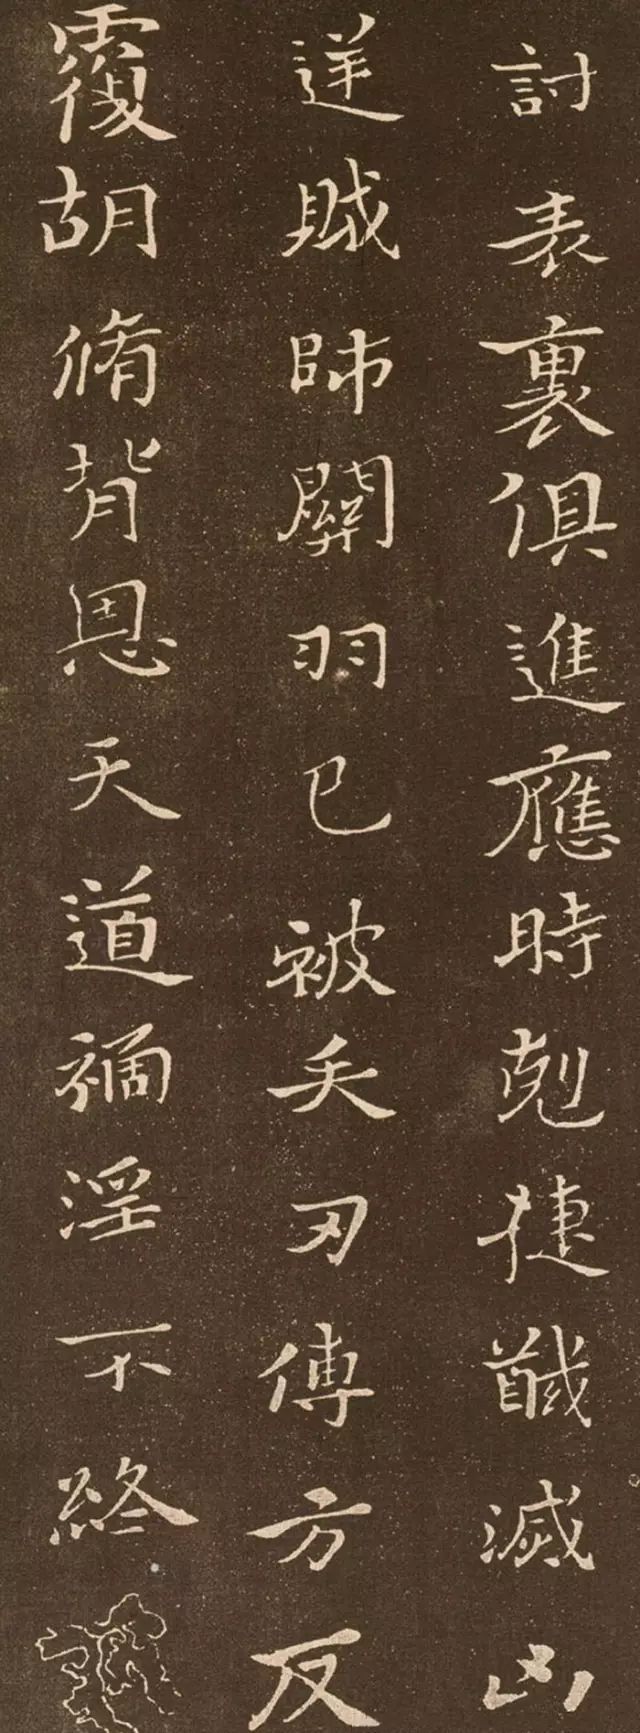 討表裏俱進應時剋捷馘滅凶
逆賊帥關羽已被矢刃傅方反
覆胡脩背恩天道禍淫不終